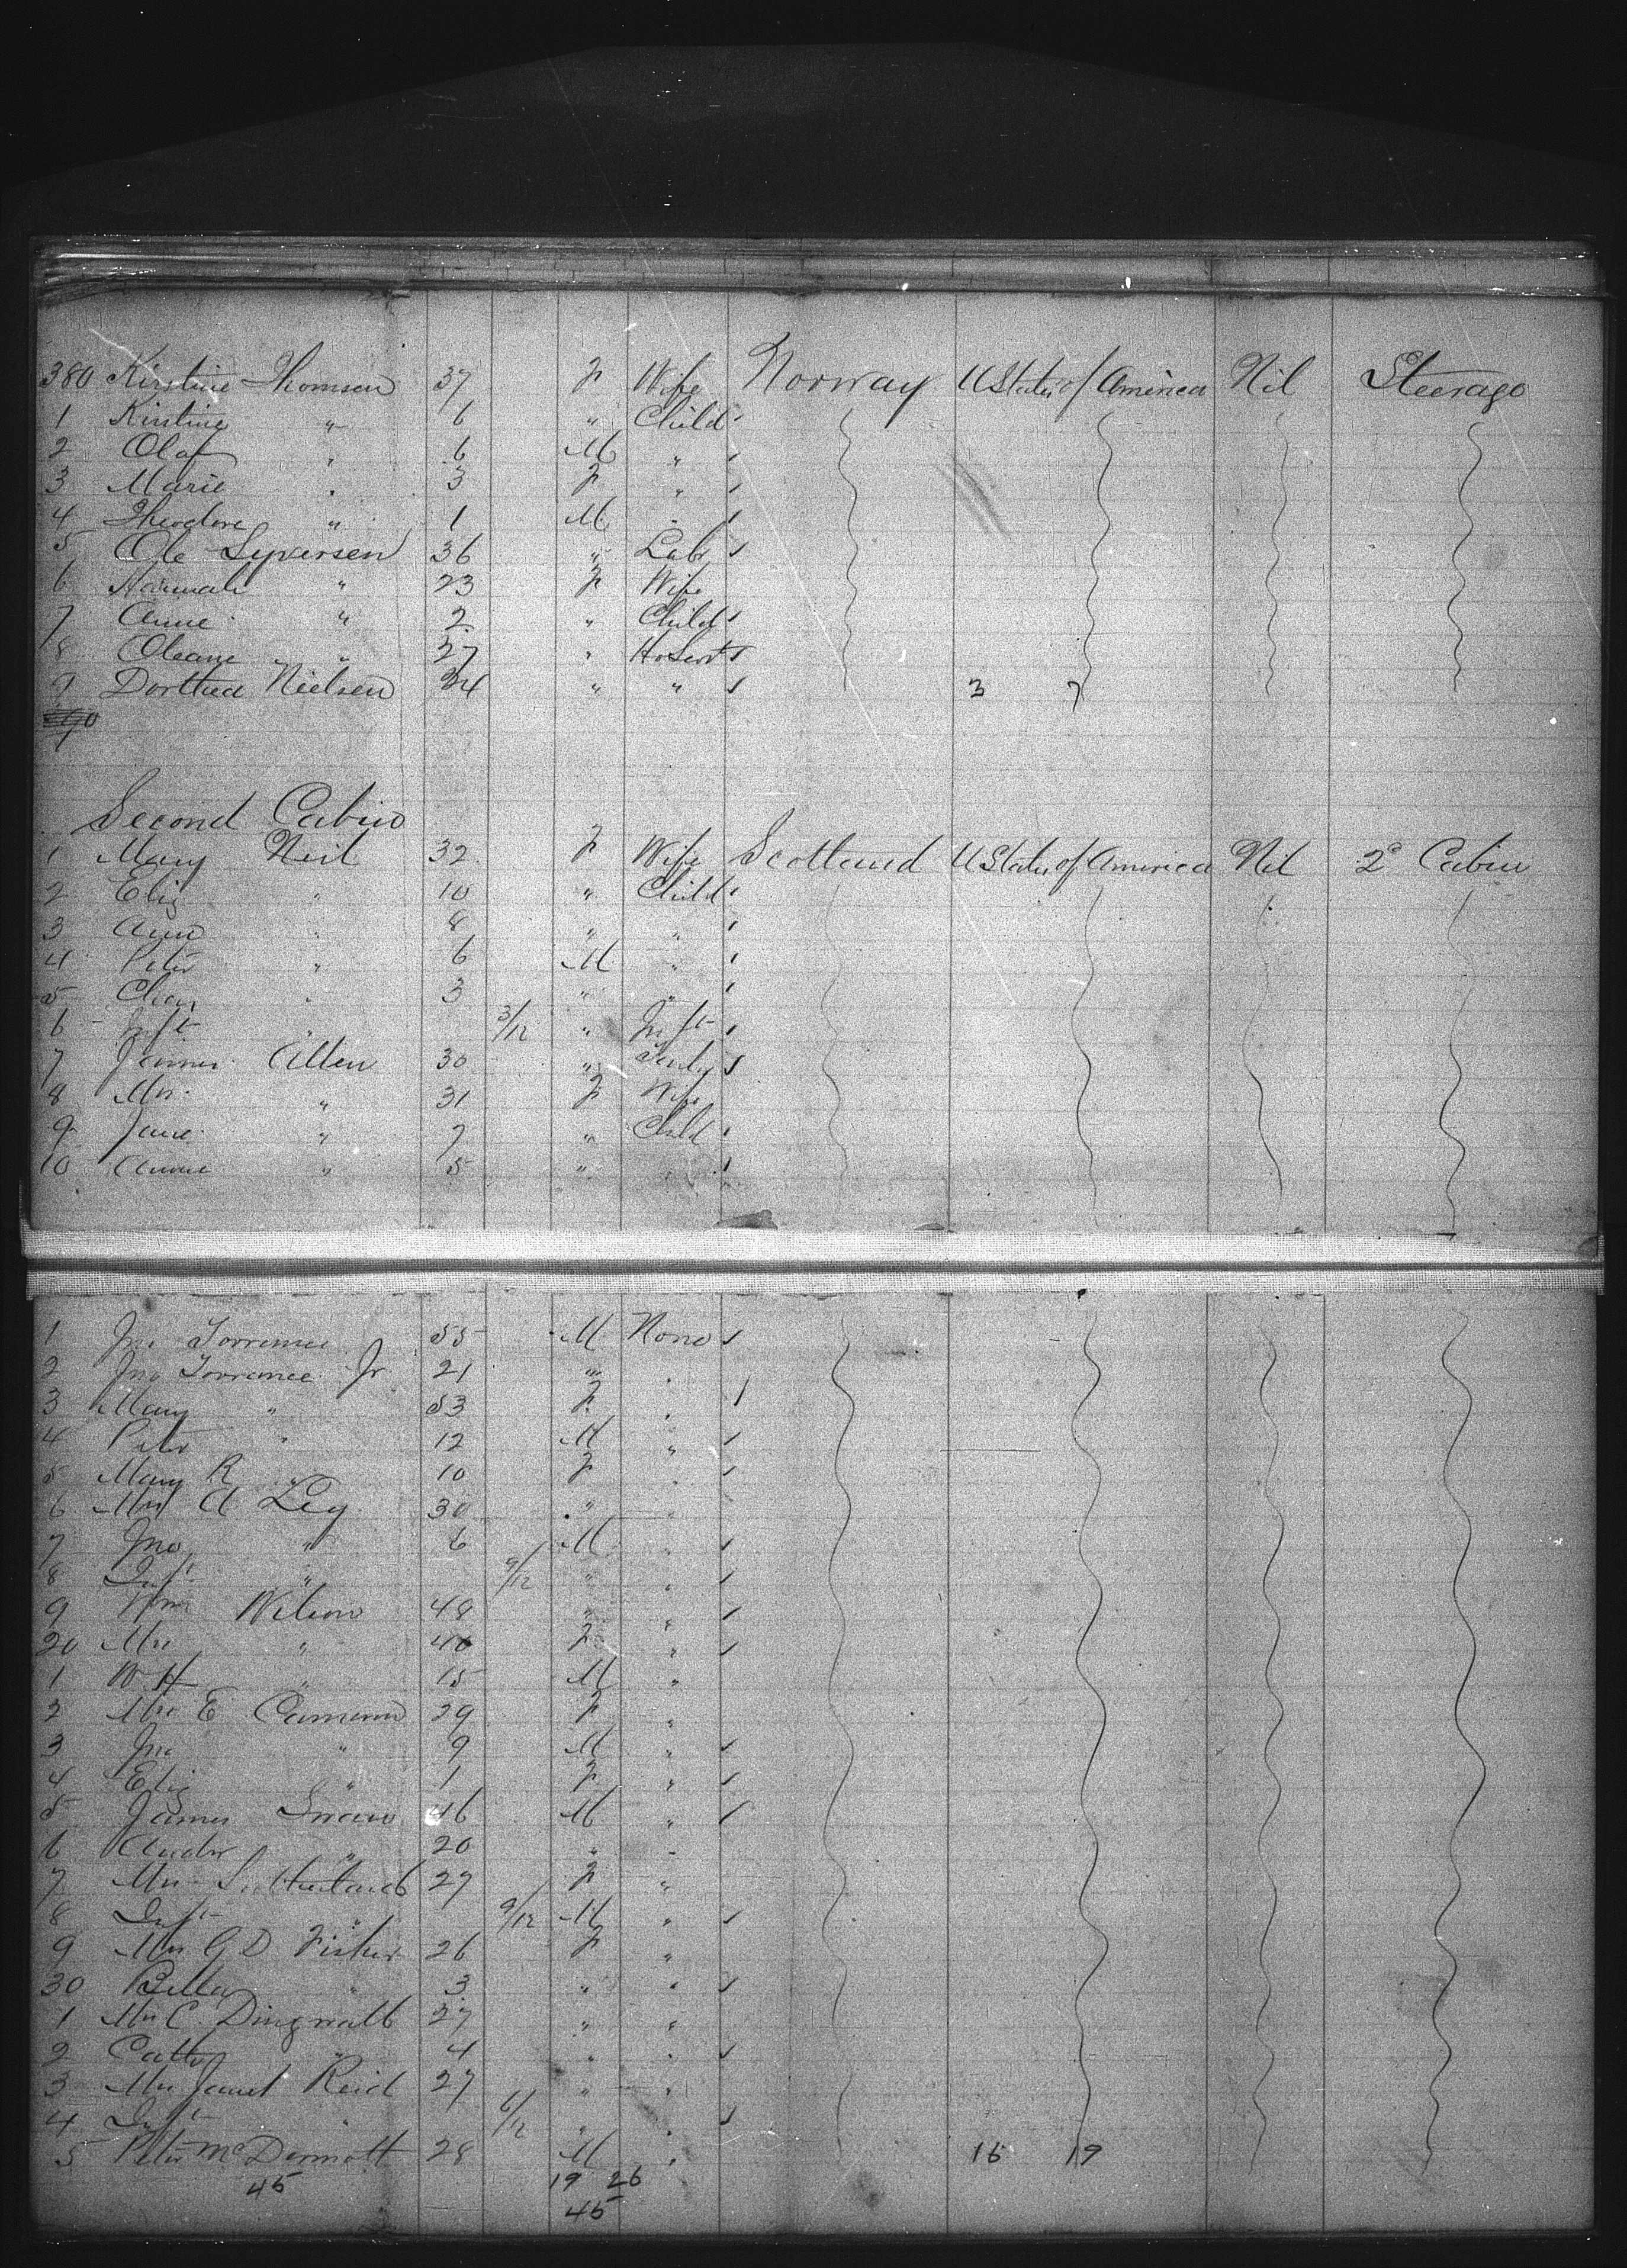 380 Kirstine Thomsen 37 F Wife Norway U States of America Nil Steerage
1 Kirstine " 6 " Child
2 Olaf " 6 M "
3 Marie " 3 F "
4 Theodore " 1 M "
5 Ole Syversen 36 " Labr
6 Hannah " 23 F Wife
7 Anne " 2 " Child
8 Oleane " 27 " HoServt
9 Dorthea Nielsen 24 " " 3 7
390
Second Cabin
1 Mary Neil 32 F Wife Scotland U States of America Nil 2º Cabin
2 Eliz " 10 " Child
3 Ann " 8 " "
4 Peter " 6 M "
5 Chas " 3 " "
6 Inft " 3/12 " Inft
7 James Allen 30 "
8 Mrs " 31 F Wife
9 Jane " 7 " Child
10 Annie " 5 "
1 Jno Torrance 55 M None
2 Jno Torrance Jr 21 " "
3 Mary " 53 F "
4 Peter " 12 M "
5 Mary R " 10 F "
6 Mrs A Leg 30 " "
7 Jno " 6 M "
8 Inft " 9/12 " "
9 Wm Wilson 48 " "
20 Mrs " 40 F "
1 W. H " 15 M "
2 Mrs E Cameron 29 F "
3 Jno " 9 M "
4 Eliz " 1 F "
5 James 46 M "
6 Andw " 20 " "
7 Mrs Sutherland 27 F "
8 Inft " 9/12 M "
9 Mrs G D Fisher 26 F "
30 Bella " 3 " "
1 Mrs C. Dingwall 27 " "
2 " 4 " "
3 Mrs Janet Reid 27 " "
4 Inft " 6/12 " "
5 Peter McDermott 28 M " 16 19
45 19 26
45